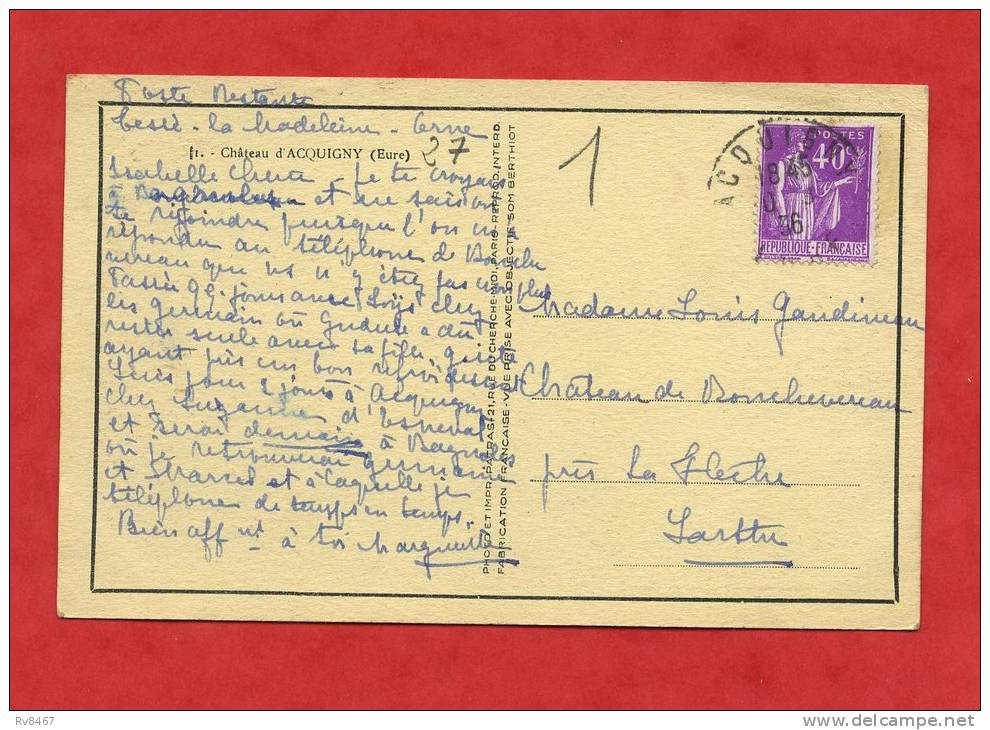 Poste Restante
Tessé - la Madeleine - Orne
11. - Château d'ACQUIGNY (Eure)
27
Isabelle Cherie - Je te croyais
et ne sais où
te rejoindre puisque l'on m'a
répondu au téléphone de Bouche
vereau que vs n'y étiez pas non plus
Passé qq. jours avec Loÿs chez
les Germain où Gudule a dû
rester seule avec sa fille
ayant pris un bon refroidissement
Suis pour 2 jours à Acquigny
chez Suzanne d'Esneval
et serai demain à Bagnoles
où je retrouverai
et et à laquelle je
téléphone de temps en temps.
Bien aff nt à toi Marguerite
PHOTO ET IMPR. PATRAS-21, RUE DU CHERCHE-MIDI, PARIS-REPROD. INTERD.
FABRICATION FRANÇAISE-VUE PRISE AVEC OBJECTIF SOM BERTHIOT
1
ACQUIGNY
18 45
36
POSTES
40c
REPUBLIQUE-FRANÇAISE
Madame Louis Gaudineau
Château de Bouchevereau
près La Flèche
Sarthe
Rv8467
www.delcampe.net